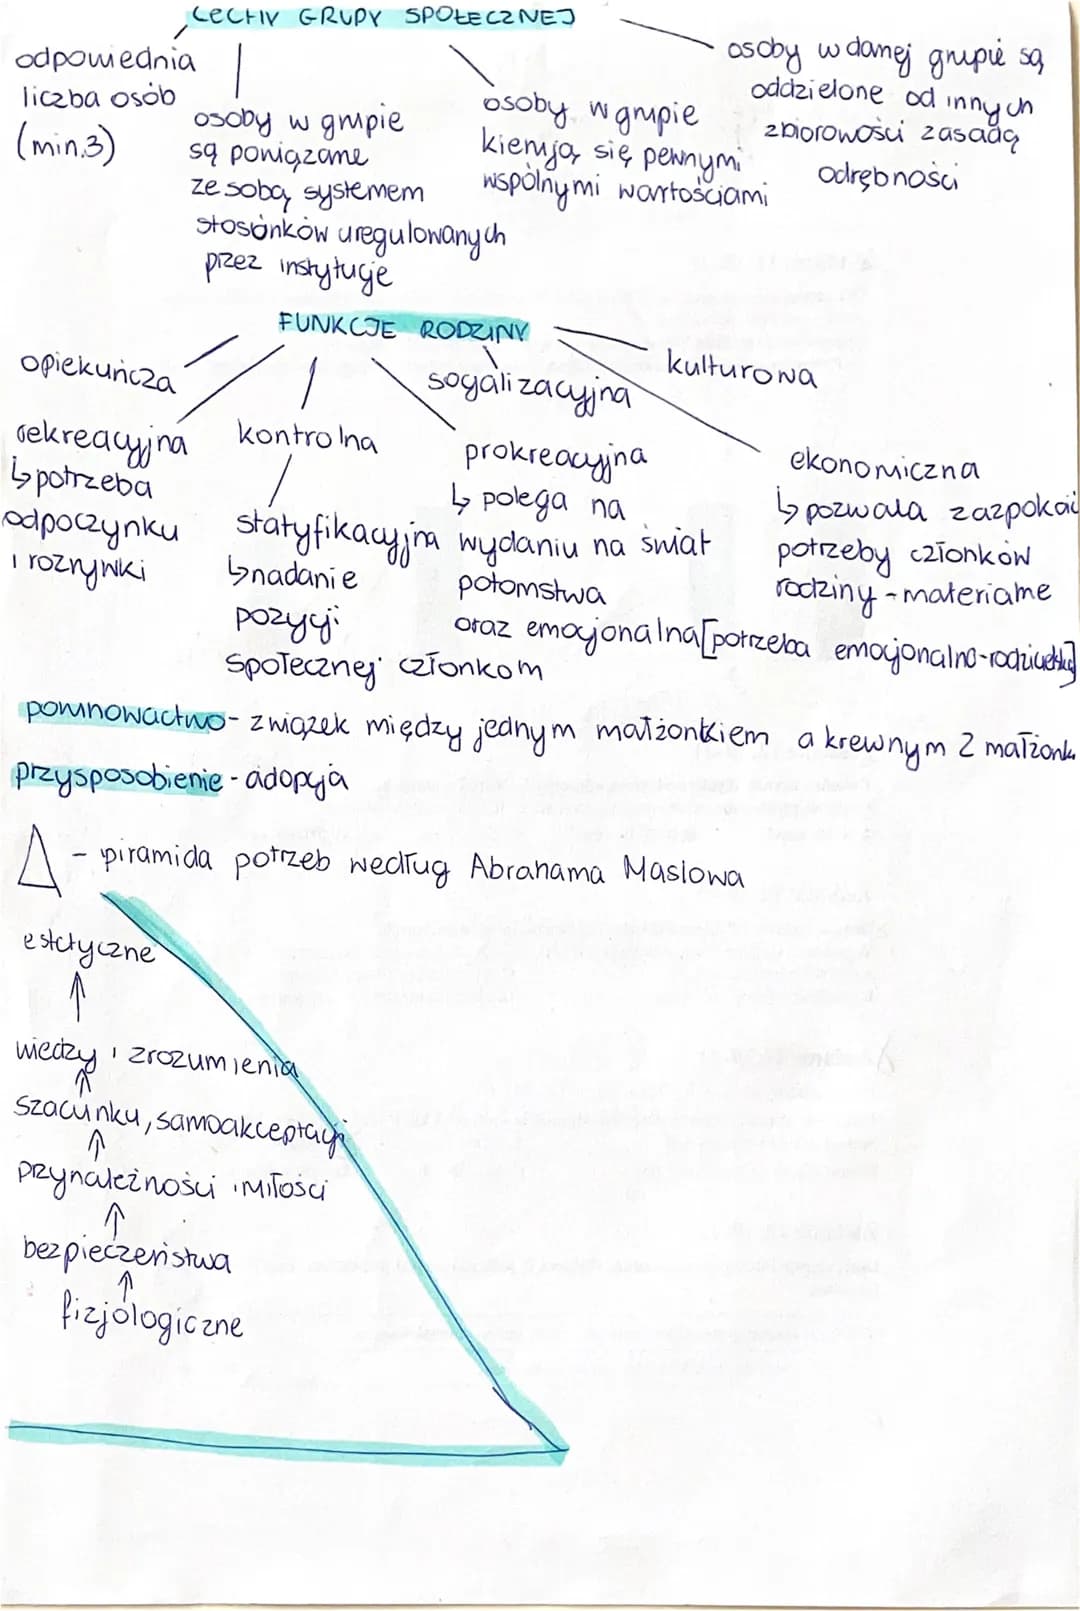 CECHY GRUPY SPOŁECZNEJ
odpowiednia
liczba osób
(min.3)
osoby w grupie
są powiązane
ze sobą systemem
stosunków uregulowanych
przez instytucje
osoby w grupie
kierują się pewnymi
wspólnymi wartościami
osoby w danej grupie są
oddzielone od innych
zbiorowości zasadą
odrębności
FUNKCJE RODZINY
opiekuńcza
rekreacyjna
↳ potrzeba
odpoczynku
i rozrywki
kontrolna
statyfikacyjna
↳ nadanie
pozycji
społecznej członkom
socjalizacyjna
prokreacyjna
↳ polega na
wydaniu na świat
potomstwa
oraz emocjonalna [potrzeba emocjonalno-rodzicielska]
kulturowa
ekonomiczna
↳ pozwala zazpokoić
potrzeby członków
rodziny - materialne
powinowactwo - związek między jednym małżonkiem a krewnym 2 małżonka
przysposobienie - adopcja
Δ - piramida potrzeb według Abrahama Maslowa
estetyczne
↑
wiedzy i zrozumienia
↑
szacunku, samoakceptacji
↑
przynależności i miłości
↑
bezpieczeństwa
↑
fizjologiczne